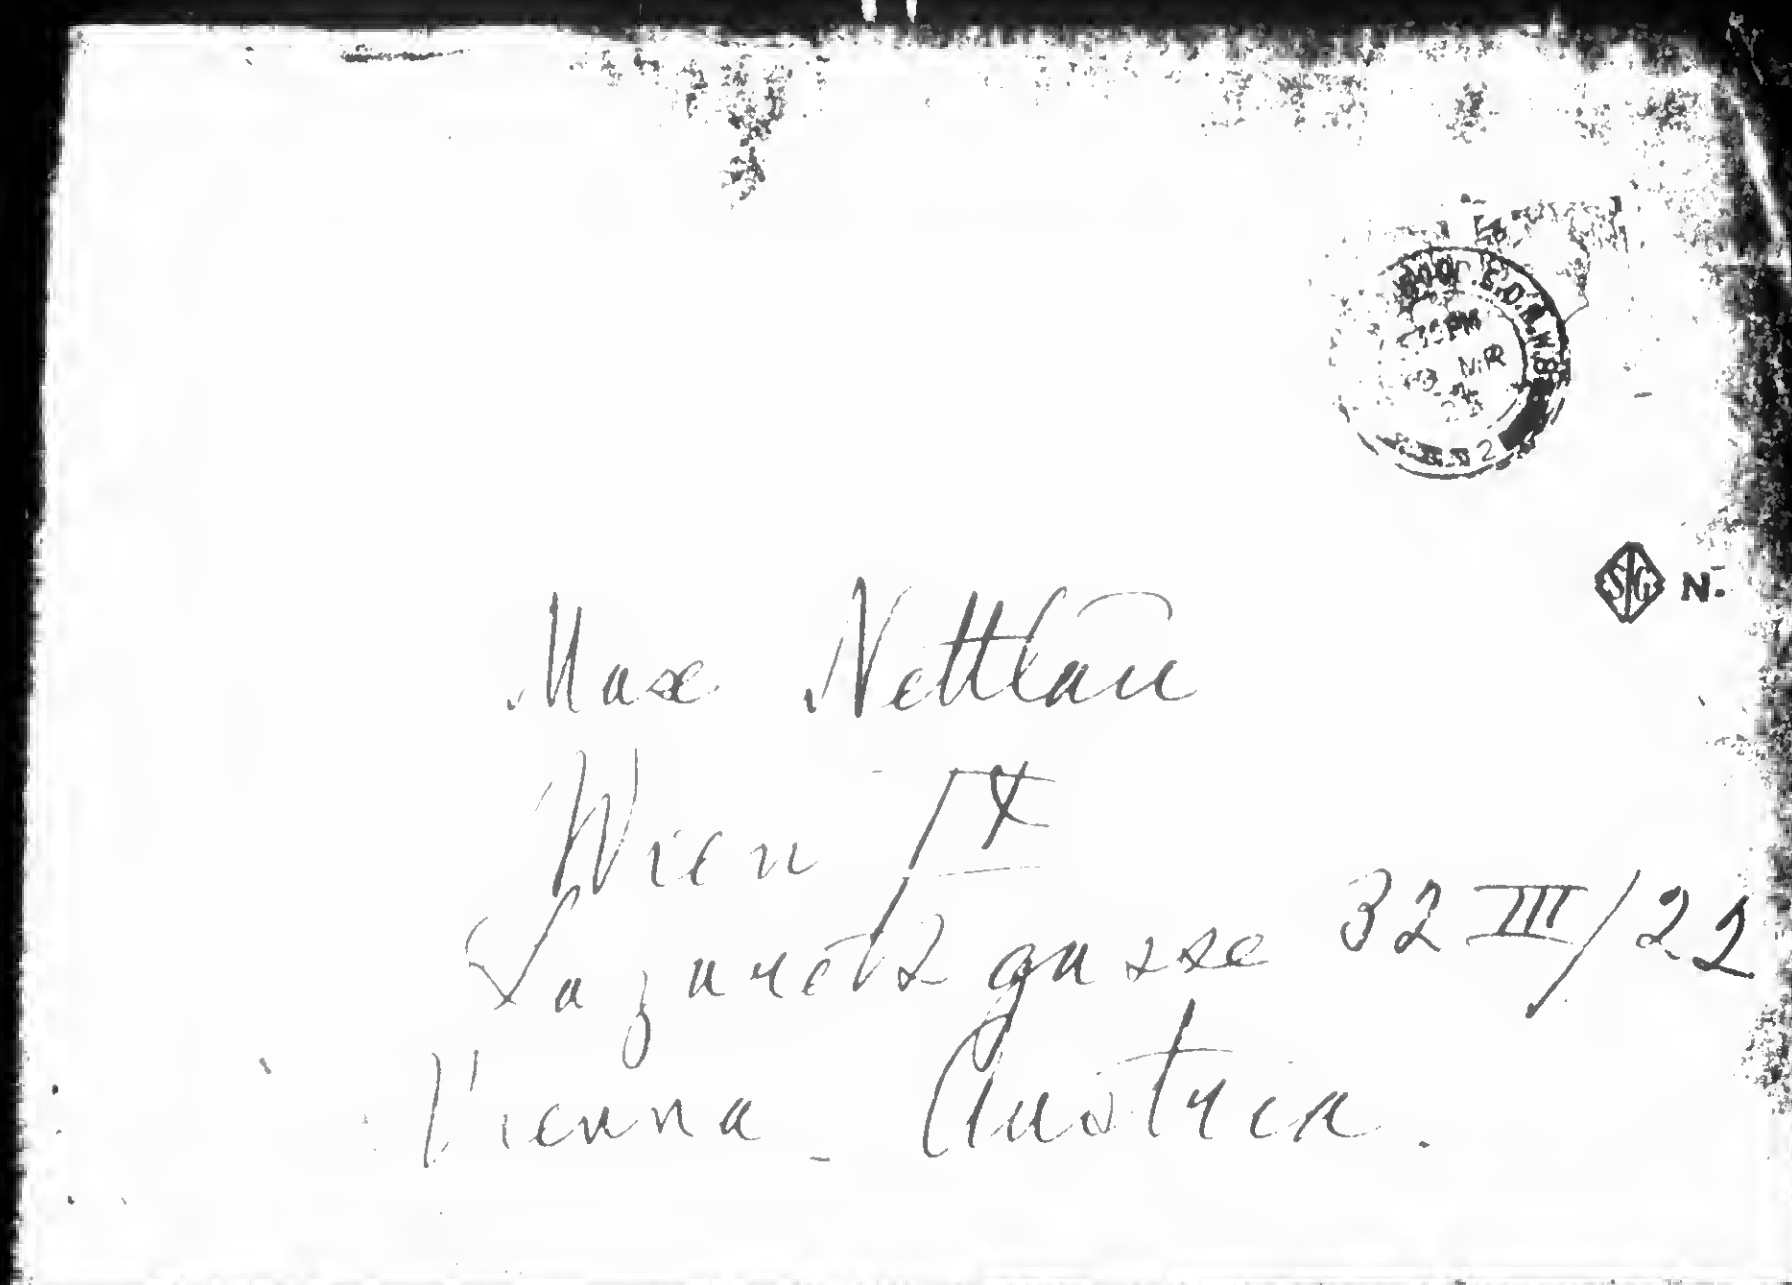 .E.D.N.W.8
PM
S G N.
Max Nettlau
Wien IX
Lazarettgasse 32 III/22
Vienna - Austria.